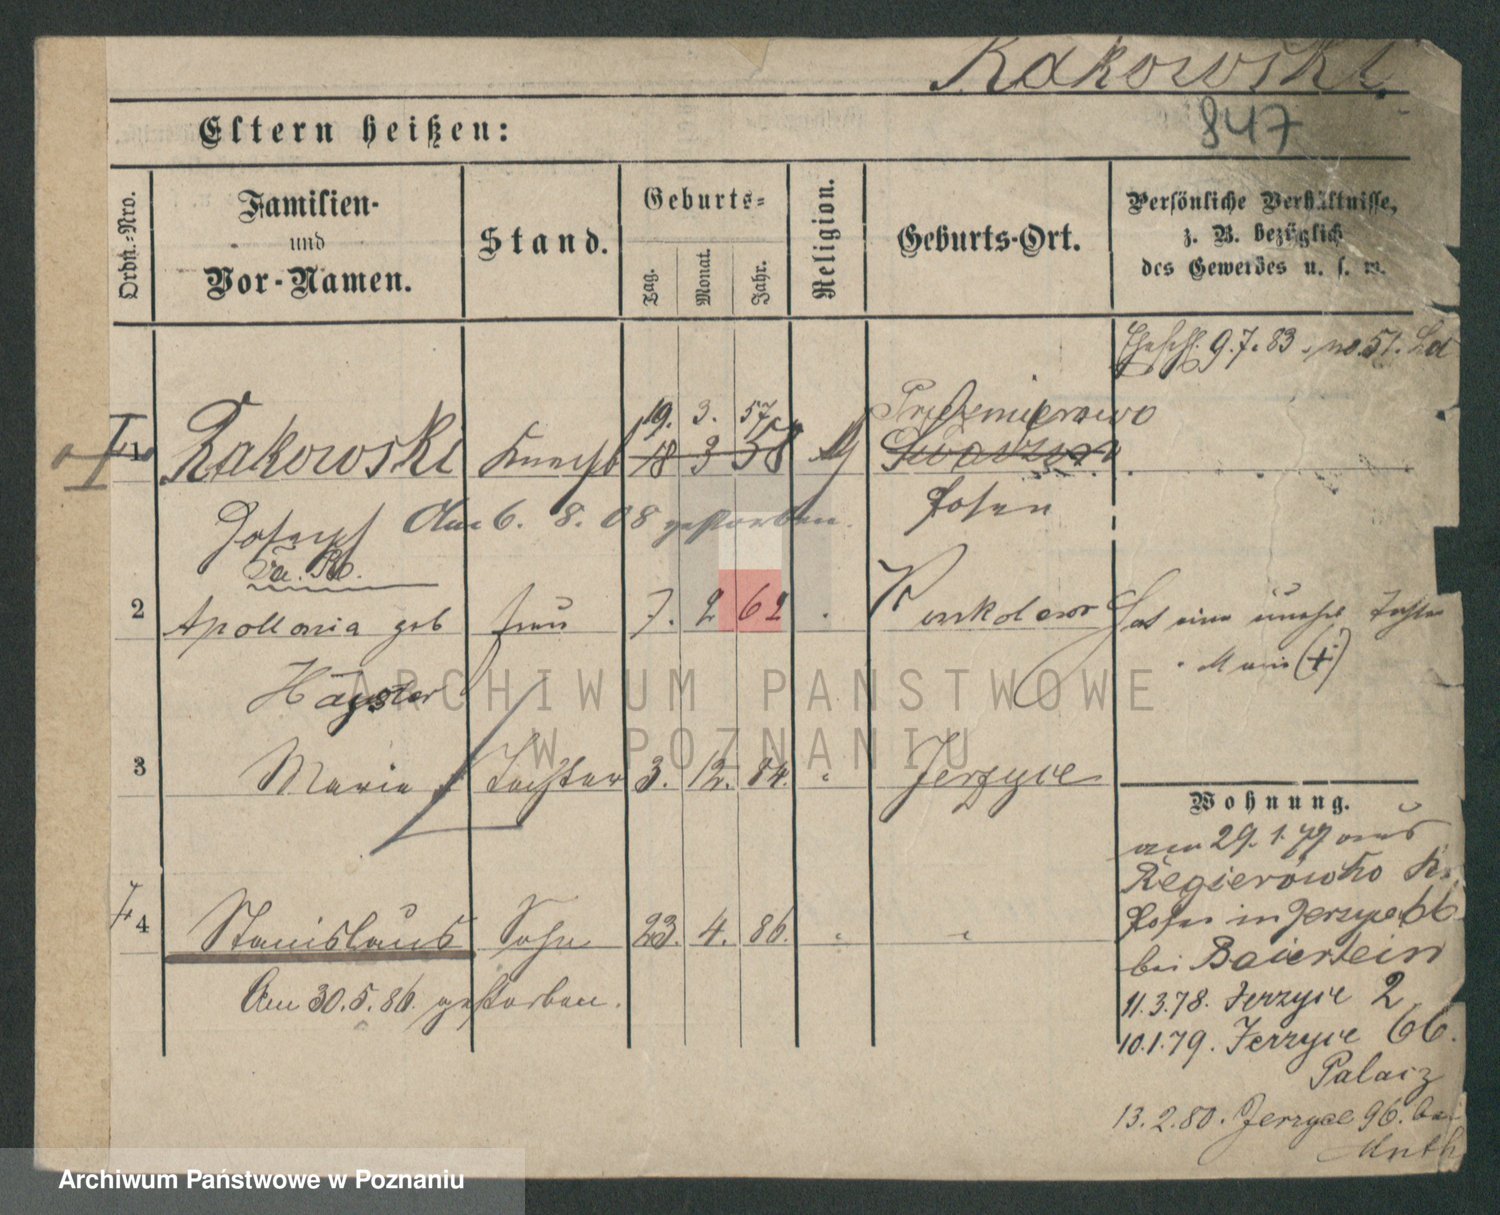 Rakowski
847
Eltern heißen:
Ordn.-Nro.
Familien-
und
Vor-Namen.
Stand.
Geburts-
Tag.
Monat.
Jahr.
Religion.
Geburts-Ort.
Persönliche Verhältnisse,
z. B. bezüglich
des Gewerbes u. s. w.
9.7.83. no. 51.
19. 3. 57
Przezmierowo
1 Rakowski Knecht 18 3 58
Posen
Joseph Am 6. 8. 08 gestorben.
2 Apollonia geb Frau 7. 2 62 Hat eine unehel Tochter
Marie (+)
3 Marie Tochter 3. 12. 84. Jerzyce
Hägster
4 Stanislaus Sohn 23. 4. 86.
Am 30.5.86. gestorben.
Wohnung.
am 29.1.77 aus
Regierowko Kr.
Posen in Jerzyce 66
bei Baierlein
11.3.78. Jerzyce 2
10.1.79. Jerzyce 66.
Palacz
13.2.80. Jerzyce 96. bei
Muth
ARCHIWUM PAŃSTWOWE
W POZNANIU
Archiwum Państwowe w Poznaniu